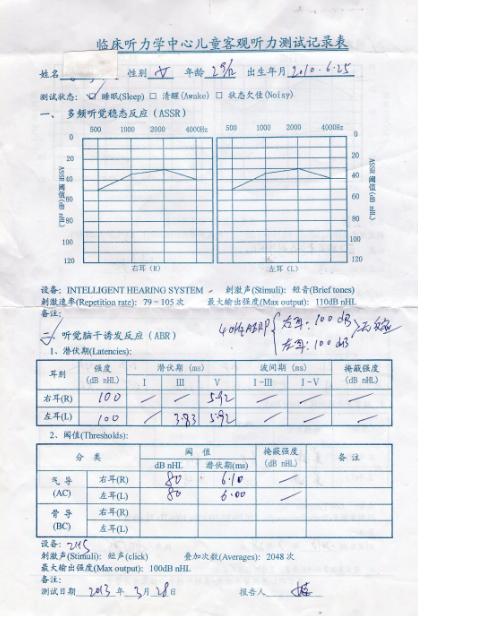 临床听力学中心儿童客观听力测试记录表
姓名 性别 女 年龄 出生年月 2010.6.25
测试状态: ☑ 睡眠(Sleep) □ 清醒(Awake) □ 状态欠佳(Noisy)
一、 多频听觉稳态反应 (ASSR)
500 1000 2000 4000Hz 500 1000 2000 4000Hz
0 0
20 20
40 40
60 60
80 80
100 100
120 120
ASSR 阈值(dB nHL) ASSR 阈值(dB nHL)
右耳 (R) 左耳 (L)
设备: INTELLIGENT HEARING SYSTEM 刺激声(Stimuli): 短音(Brief tones)
刺激速率(Repetition rate): 79-105 次 最大输出强度(Max output): 110dB nHL
备注:
40Hz AERP 右耳: 100 dB
左耳: 100 dB
二、 听觉脑干诱发反应 (ABR)
1、潜伏期(Latencies):
耳别 强度 (dB nHL) 潜伏期 (ms) 波间期 (ms) 掩蔽强度 (dB nHL)
I III V I-III I-V
右耳(R) 100 / / 5.92 / / /
左耳(L) 100 / 3.83 5.92 / / /
2、阈值(Thresholds):
分 类 阈 值 掩蔽强度 (dB nHL) 备 注
dB nHL 潜伏期(ms)
气 导 (AC) 右耳(R) 80 6.10 /
左耳(L) 80 6.00 /
骨 导 (BC) 右耳(R)
左耳(L)
设备:
刺激声(Stimuli): 短声(click) 叠加次数(Averages): 2048 次
最大输出强度(Max output): 100dB nHL
备注:
测试日期 2013 年 3 月 28 日 报告人